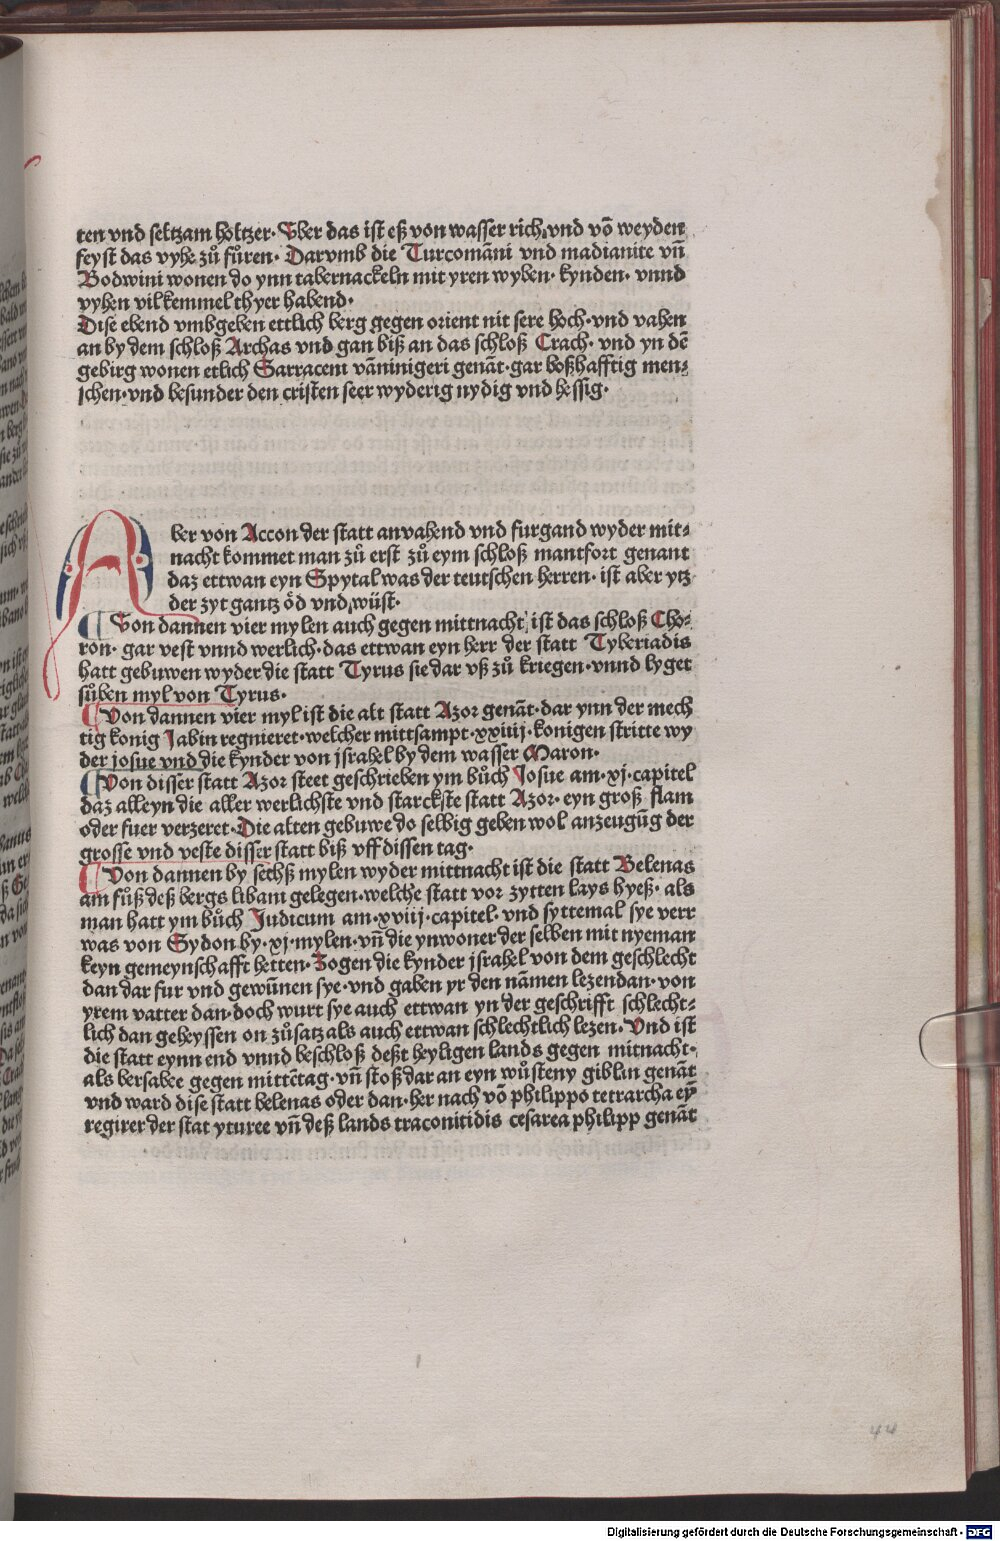 ten vnd seltzam holtzer· Vber das ist eß von wasser rich, vnd võ weyden
feyst das vyhe zů fůren· Darvmb die Turcomãni vnd madianite vñ
Bodwini wonen do ynn tabernackeln mit yren wyben· kynden· vnnd
vyhen vil kemmelthyer habend·
Dise ebend vmbgeben ettlich berg gegen orient nit sere hoch· vnd vahen
an by dem schloß Archas vnd gan biß an das schloß Crach· vnd yn dẽ
gebirg wonen etlich Sarraceni vãninigeri genãt· gar boßhafftig men⸗
schen· vnd besunder den cristen seer wyderig nydig vnd hessig·
Aber von Accon der statt anvahend vnd furgand wyder mit⸗
nacht kommet man zů erst zů eym schloß mantfort genant
daz ettwan eyn Spytal was der teutschen herren· ist aber ytz
der zyt gantz ód vnd, wüst·
¶ Von dannen vier mylen auch gegen mittnacht ist das schloß Cho⸗
ron· gar vest vnnd werlich· das ettwan eyn herr der statt Tyberiadis
hatt gebuwen wyder die statt Tyrus sie dar vß zů kriegen· vnnd lyget
sůben myl von Tyrus·
¶ Von dannen vier myl ist die alt statt Azor genãt· dar ynn der mech
tig konig Jabin regnieret· welcher mittsampt·xxiiij·konigen stritte wy
der josue vnd die kynder von jsrahel by dem wasser Maron·
¶ Von disser statt Azor steet geschrieben ym bůch Josue am·xj·capitel
daz alleyn die aller werlichste vnd starckste statt Azor· eyn groß flam
oder fuer verzeret· Die alten gebuwe do selbig geben wol anzeugũg der
grosse vnd veste disser statt biß vff dissen tag·
¶ Von dannen by sechß mylen wyder mittnacht ist die statt Belenas
am fůß deß bergs libani gelegen· welche statt vor zytten lays hyeß· als
man hatt ym bůch Judicum am·xviij·capitel· vnd syttemal sye verr
was von Sydon by·xj·mylen· vñ die ynwoner der selben mit nyeman
keyn gemeynschafft hetten· Zogen die kynder jsrahel von dem geschlecht
dan dar fur vnd gewũnen sye· vnd gaben yr den nãmen lezendan· von
yrem vatter dan· doch wurt sye auch ettwan yn der geschrifft schlecht⸗
lich dan geheyssen on zůsatz als auch ettwan schlechtlich lezen· Vnd ist
die statt eynn end vnnd beschloß deßt heyligen lands gegen mitnacht·
als bersabee gegen mittẽtag· vñ stoß dar an eyn wůsteny giblin genãt
vnd ward dise statt belenas oder dan· her nach võ philippo tetrarcha eỹ
regirer der stat yturee vñ deß lands traconitidis cesarea philipp genãt
44
Digitalisierung gefördert durch die Deutsche Forschungsgemeinschaft · DFG